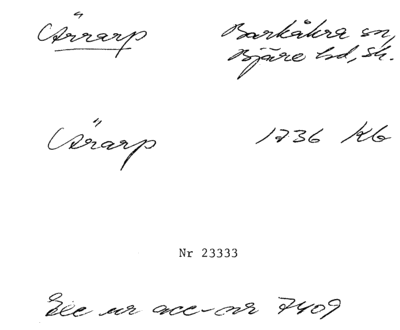 Ärrarp Barkåkra sn,
Bjäre hd, Sk.
Ärarp 1736 Kb
Nr 23333
Exc ur acc-nr 7409